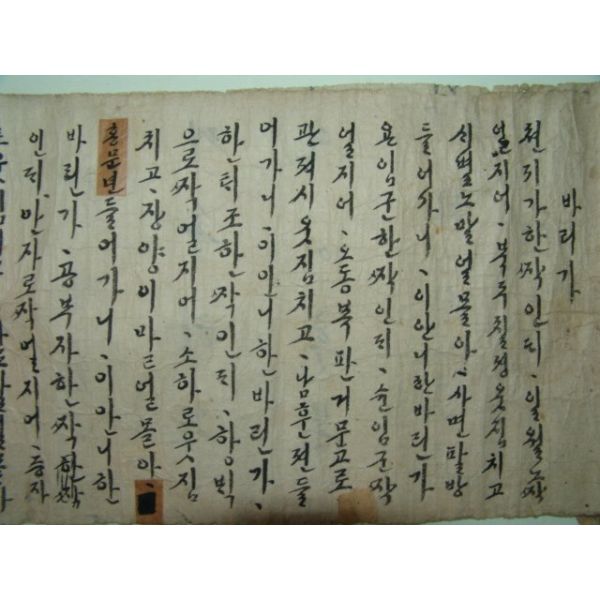 바리가
천지가한짝인듸、일월노짝
얼지어、북두칠성웃짐치고
신별노말얼몰아、사면팔방
들어가니、이안니한바린가
요임군한짝인듸、순임군짝
얼지어、오동복판거문고로
관져시웃짐치고、남훈젼들
어가니、이안니한바린가、
한퇴조한짝인듸、항벽
으로짝얼지어、소하로우짐
치고、장양이마르얼몰아、
홍문연들어가니、이안니한
바린가、공부자한짝
인듸、안자로짝얼지어、증자